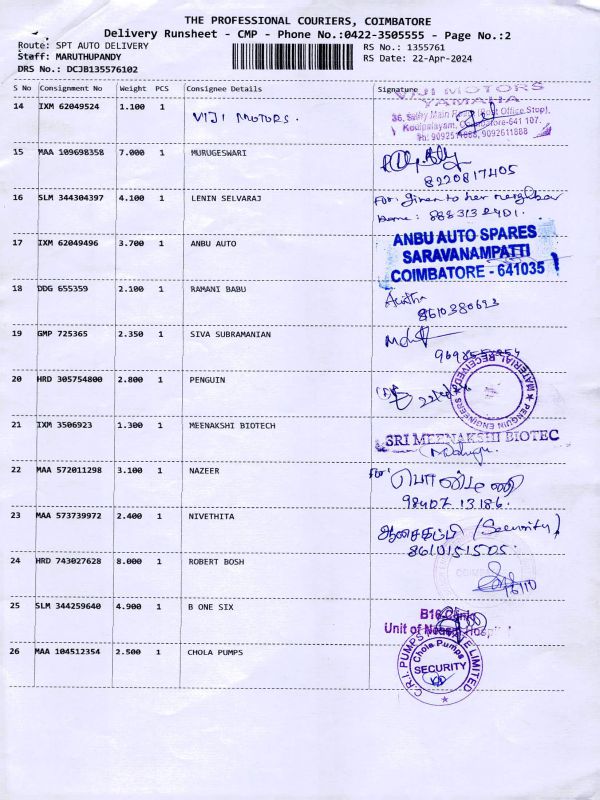 THE PROFESSIONAL COURIERS, COIMBATORE
Delivery Runsheet - CMP - Phone No.:0422-3505555 - Page No.:2
Route: SPT AUTO DELIVERY RS No.: 1355761
Staff: MARUTHUPANDY RS Date: 22-Apr-2024
DRS No.: DCJB135576102
S No Consignment No Weight PCS Consignee Details Signature
VIJI MOTORS
YAMAHA
14 IXM 62049524 1.100 1 VIJI MOTORS.
36, Sathy Main Road, (Post Office Stop),
Kovilpalayam, Coimbatore-641 107.
Ph: 9092511888, 9092611888
15 MAA 109698358 7.000 1 MURUGESWARI
8220817405
16 SLM 344304397 4.100 1 LENIN SELVARAJ For: given to her neighbor
17 IXM 62049496 3.700 1 ANBU AUTO
ANBU AUTO SPARES
SARAVANAMPATTI
COIMBATORE - 641035
18 DDG 655359 2.100 1 RAMANI BABU
8610380693
19 GMP 725365 2.350 1 SIVA SUBRAMANIAN
20 HRD 305754800 2.800 1 PENGUIN
PENGUIN ENGINEERS
MATERIAL RECEIVED
21 IXM 3506923 1.300 1 MEENAKSHI BIOTECH
SRI MEENAKSHI BIOTEC
22 MAA 572011298 3.100 1 NAZEER For:
98407 13186.
23 MAA 573739972 2.400 1 NIVETHITA (Security)
8610151505.
24 HRD 743027628 8.000 1 ROBERT BOSH
25 SLM 344259640 4.900 1 B ONE SIX
Unit of
26 MAA 104512354 2.500 1 CHOLA PUMPS
C.R.I. PUMPS PRIVATE LIMITED
Chola Pumps
SECURITY